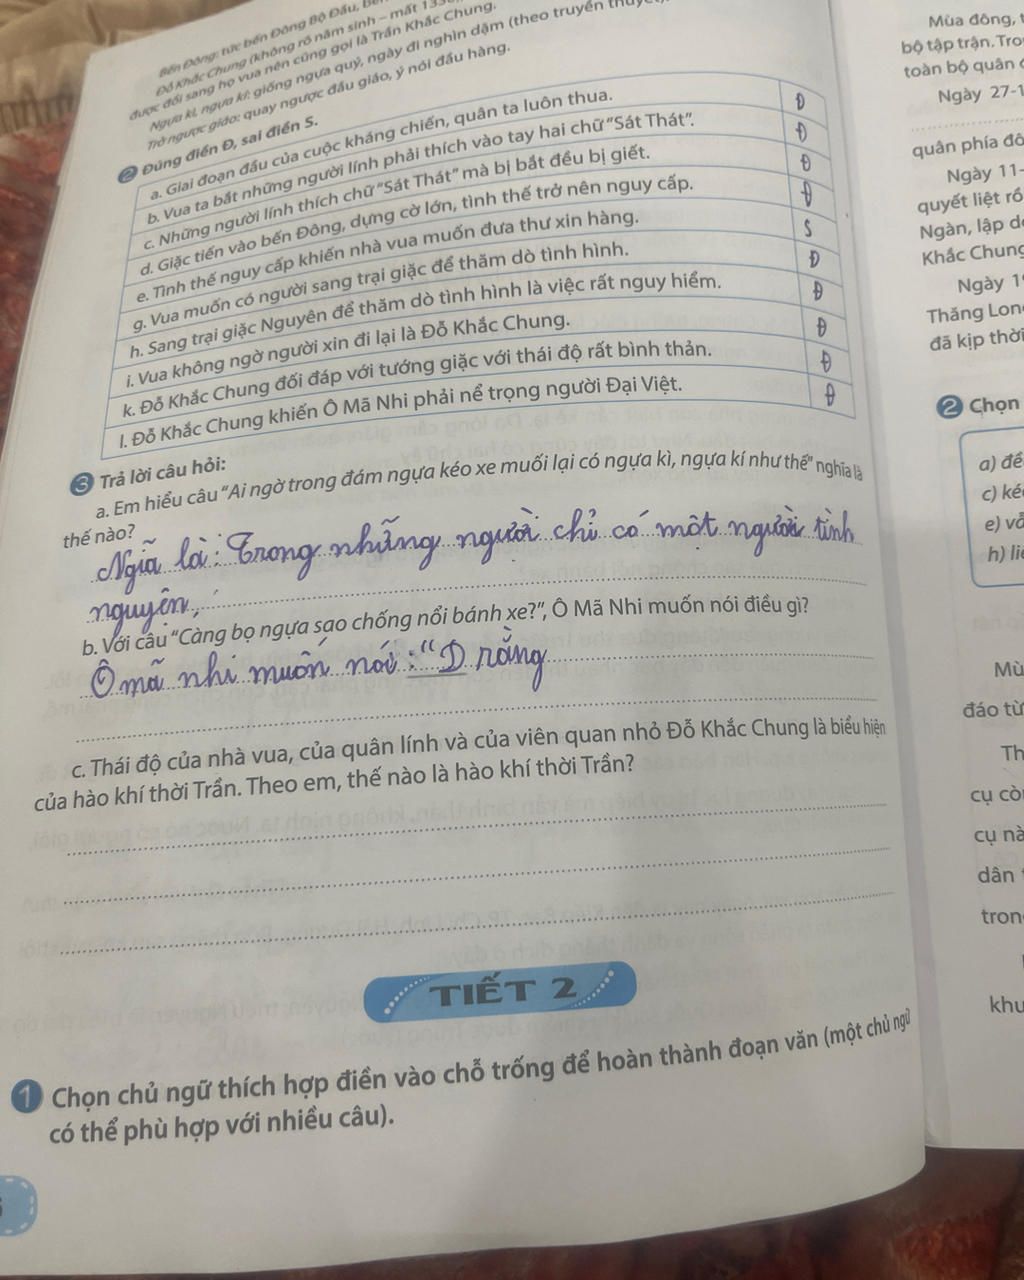 Bến Đông: tức bến Đông Bộ Đầu,
Đỗ Khắc Chung (không rõ năm sinh – mất
được đổi sang họ vua nên cũng gọi là Trần Khắc Chung.
Ngựa kì, ngựa kí: giống ngựa quý, ngày đi nghìn dặm (theo truyền
Trở ngược giáo: quay ngược đầu giáo, ý nói đầu hàng.
2 Đúng điền Đ, sai điền S.
a. Giai đoạn đầu của cuộc kháng chiến, quân ta luôn thua. Đ
b. Vua ta bắt những người lính phải thích vào tay hai chữ "Sát Thát". Đ
c. Những người lính thích chữ "Sát Thát" mà bị bắt đều bị giết. Đ
d. Giặc tiến vào bến Đông, dựng cờ lớn, tình thế trở nên nguy cấp. Đ
e. Tình thế nguy cấp khiến nhà vua muốn đưa thư xin hàng. S
g. Vua muốn có người sang trại giặc để thăm dò tình hình. Đ
h. Sang trại giặc Nguyên để thăm dò tình hình là việc rất nguy hiểm. Đ
i. Vua không ngờ người xin đi lại là Đỗ Khắc Chung. Đ
k. Đỗ Khắc Chung đối đáp với tướng giặc với thái độ rất bình thản. Đ
l. Đỗ Khắc Chung khiến Ô Mã Nhi phải nể trọng người Đại Việt. Đ
3 Trả lời câu hỏi:
a. Em hiểu câu "Ai ngờ trong đám ngựa kéo xe muối lại có ngựa kì, ngựa kí như thế" nghĩa là
thế nào?
Ngiã là: Trong những người chỉ có một người tình
nguyện,
b. Với câu "Càng bọ ngựa sao chống nổi bánh xe?", Ô Mã Nhi muốn nói điều gì?
Ô mã nhi muốn nói: "D rằng
c. Thái độ của nhà vua, của quân lính và của viên quan nhỏ Đỗ Khắc Chung là biểu hiện
của hào khí thời Trần. Theo em, thế nào là hào khí thời Trần?
TIẾT 2
1 Chọn chủ ngữ thích hợp điền vào chỗ trống để hoàn thành đoạn văn (một chủ ngữ
có thể phù hợp với nhiều câu).
Mùa đông,
bộ tập trận. Tro
toàn bộ quân
Ngày 27-1
quân phía đô
Ngày 11-
quyết liệt rồ
Ngàn, lập d
Khắc Chung
Ngày 1
Thăng Lon
đã kịp thời
2 Chọn
a) để
c) ké
e) vã
h) li
Mù
đáo từ
Th
cụ cò
cụ nà
dân
tron
khu